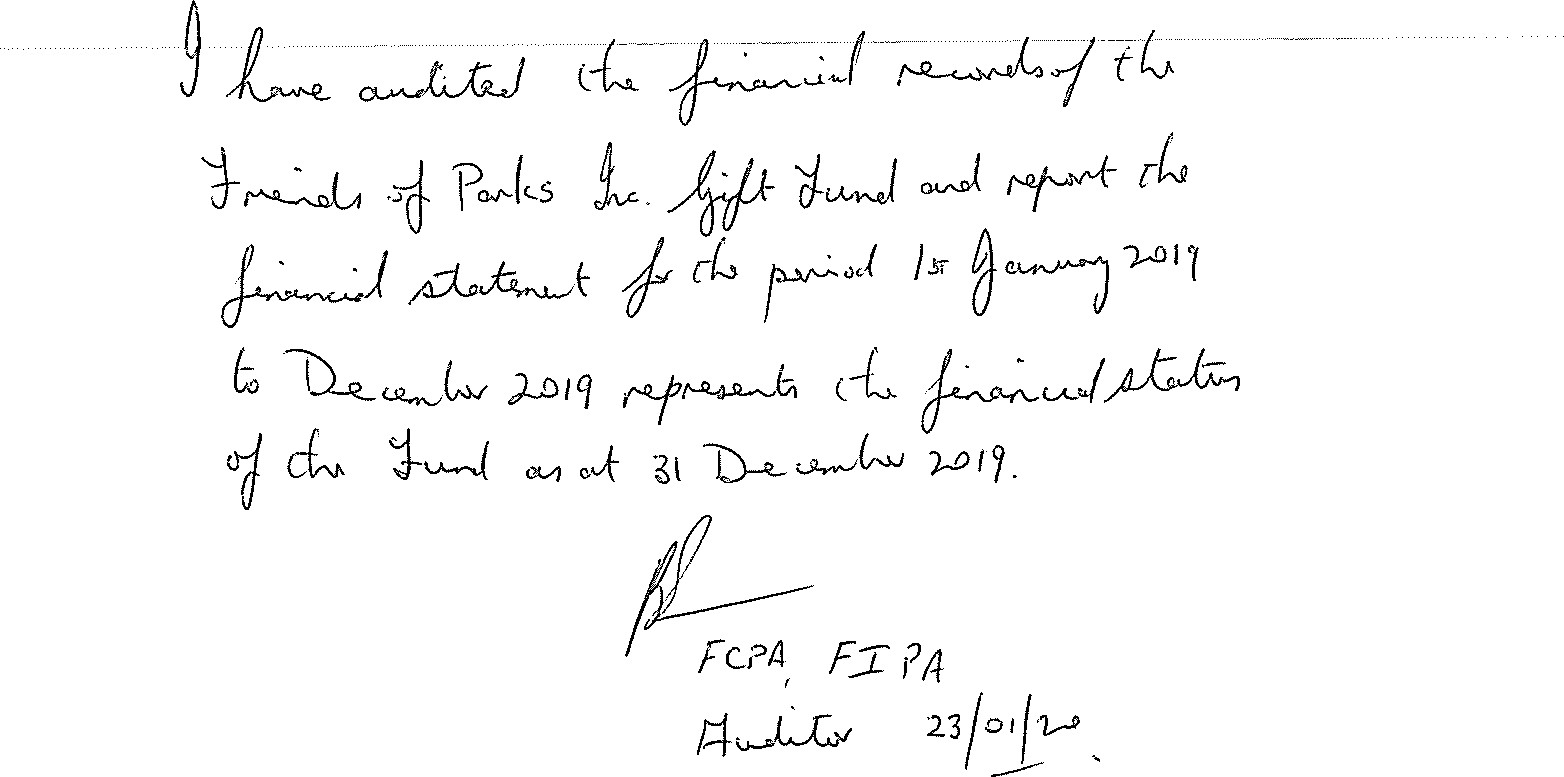 I have audited the financial records of the
Friends of Parks Inc. Gift Fund and report the
financial statement for the period 1st January 2019
to December 2019 represents the financial status
of the Fund as at 31 December 2019.
FCPA, FIPA
Auditor 23/01/20.